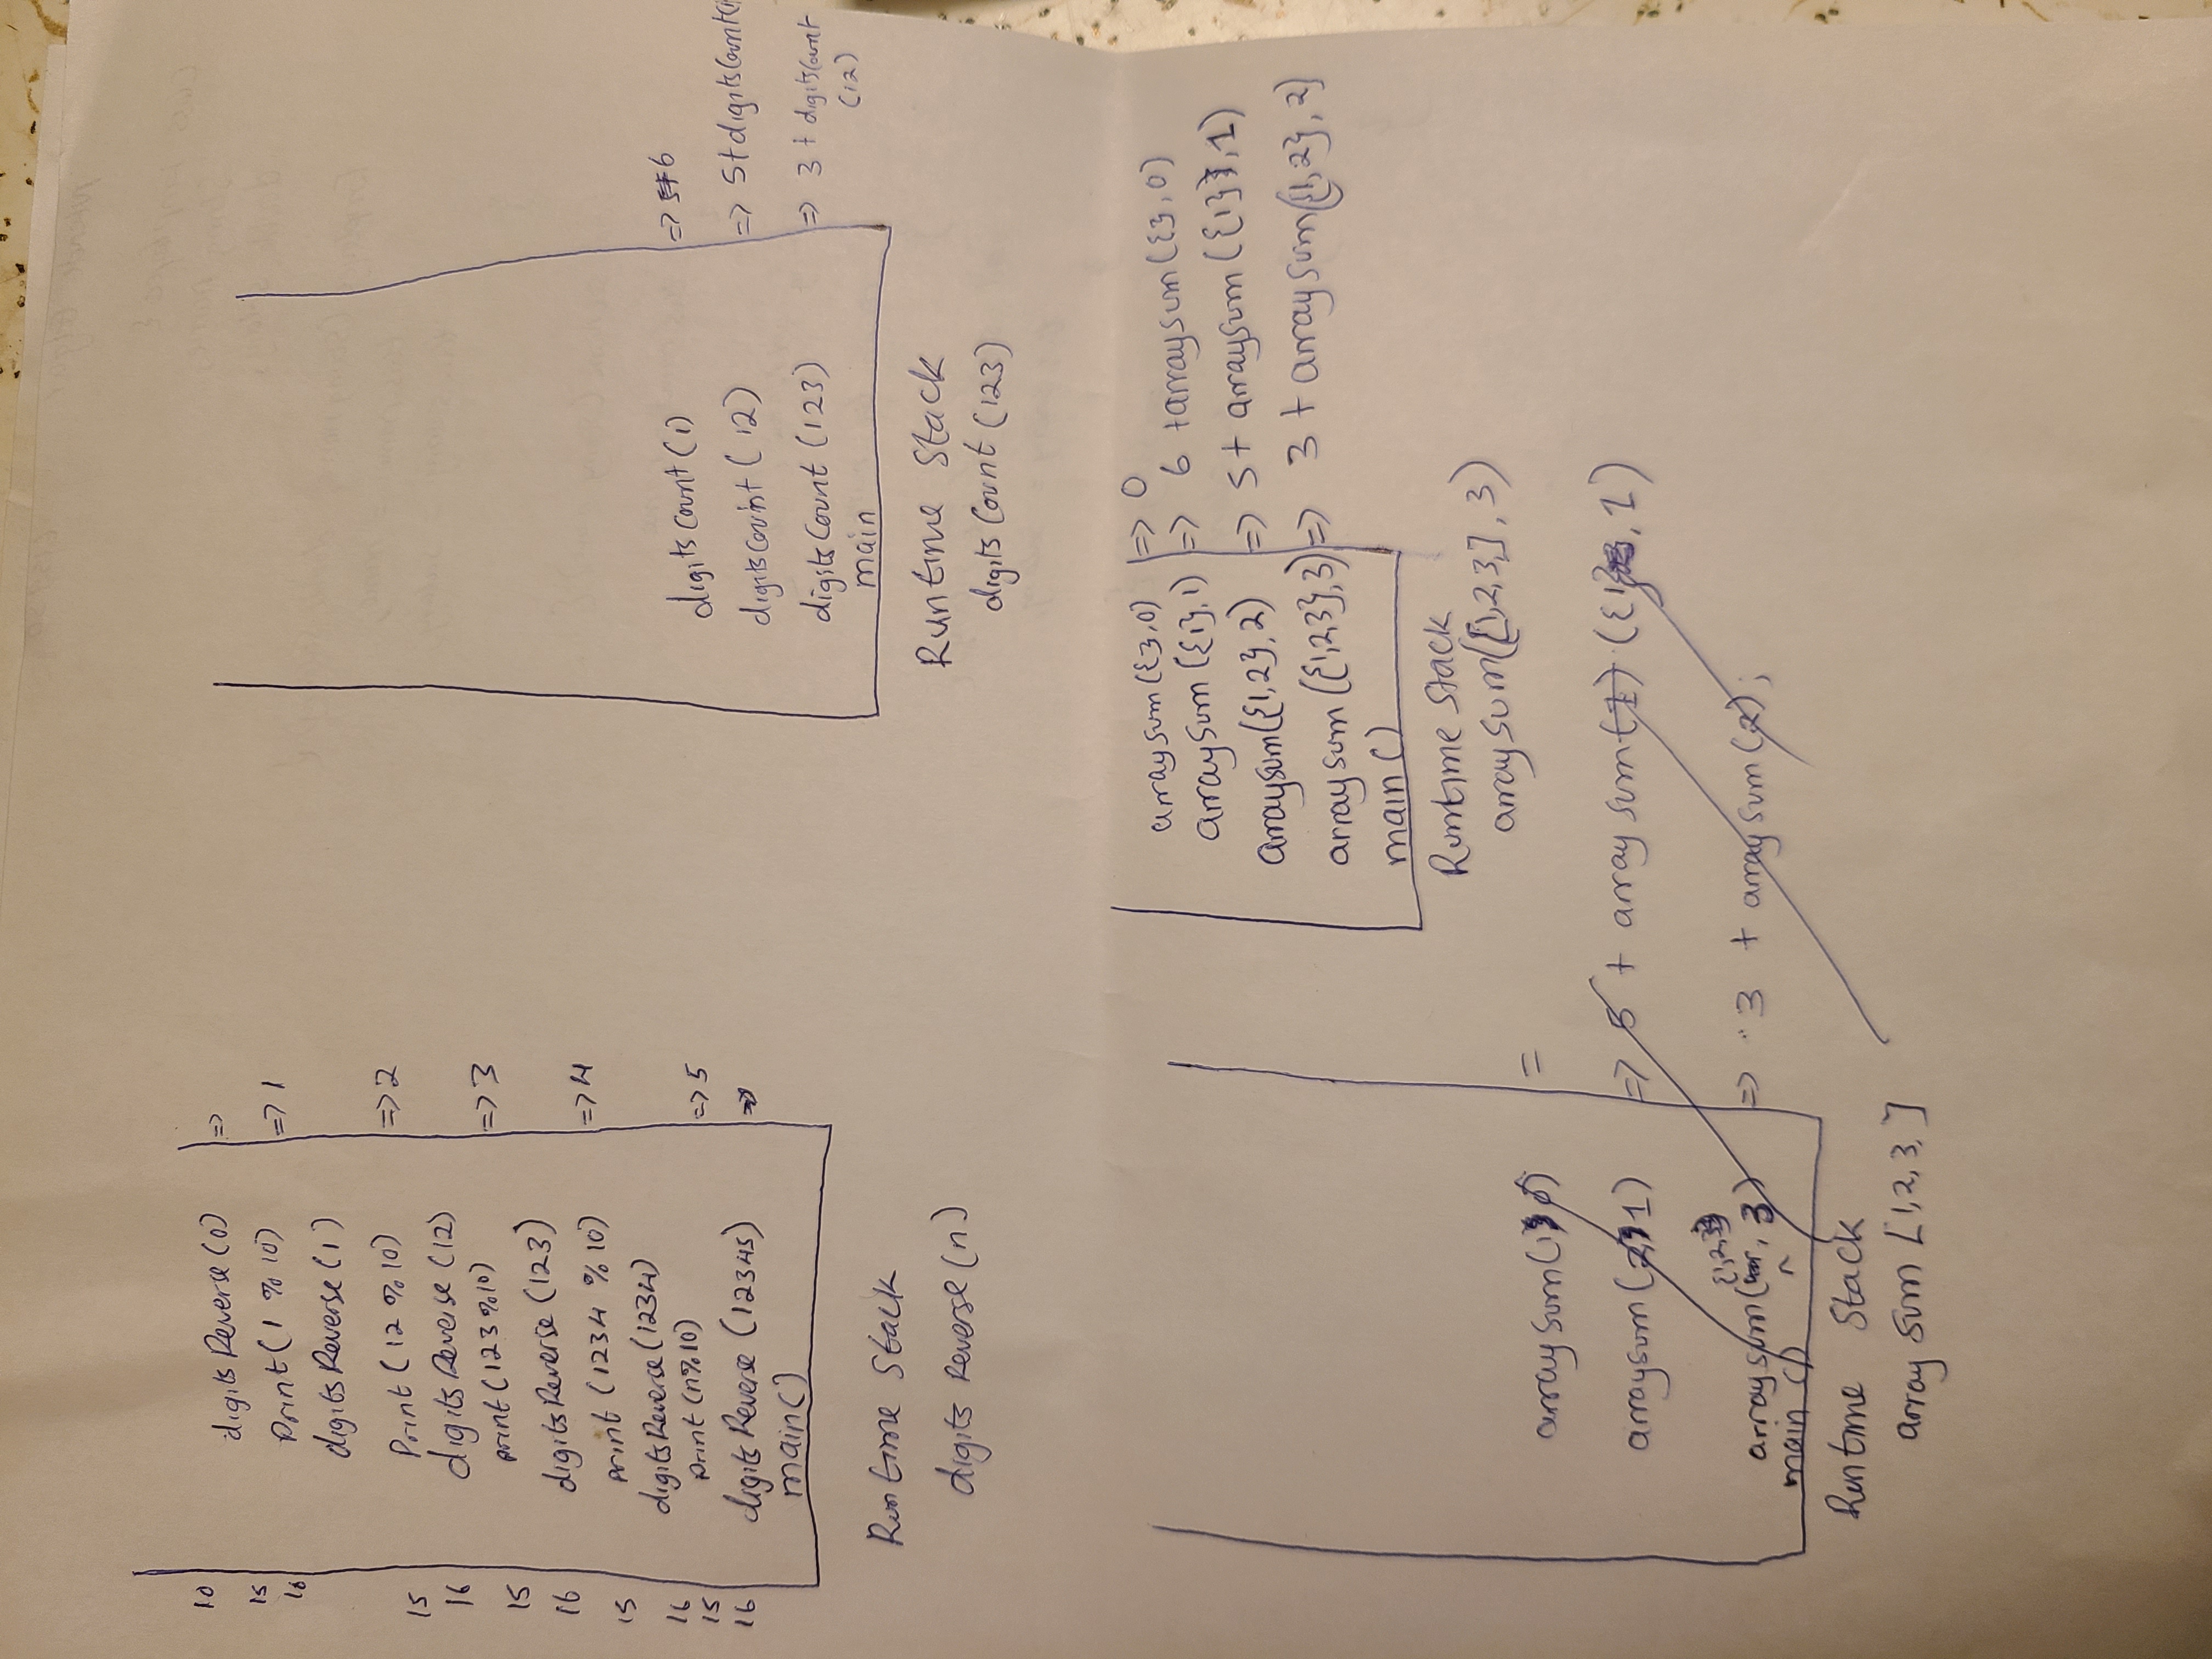 10 digitsReverse(0) =>
15 Print(1 % 10) => 1
16 digitsReverse(1)
15 Print(12 % 10) => 2
16 digitsReverse(12)
15 print(123%10) => 3
16 digitsReverse(123)
15 print(1234 % 10) => 4
16 digitsReverse(1234)
15 print(n%10) => 5
16 digitsReverse(12345) =>
main()
Runtime Stack
digits Reverse(n)
digitscount(1) => 6
digitscount(12) => 5+digitsCount(1
digitsCount(123) => 3 + digitsCount
(12)
main
Runtime Stack
digitsCount(123)
arraysum({},0) => 0
arraysum({1},1) => 6 +arraysum({},0)
arraysum({1,2},2) => 5+ arraysum({1},1)
arraysum({1,2,3},3) => 3 + arraysum({1,2},2)
main()
Runtime Stack
arraysum([1,2,3,],3)
arraysum( =
arraysum( 1) => 5 + arraysum(1) ({1}, 1)
{1,2,3}
arraysum( , 3) => 3 + arraysum(2);
main ()
Runtime Stack
array sum [1,2,3,]